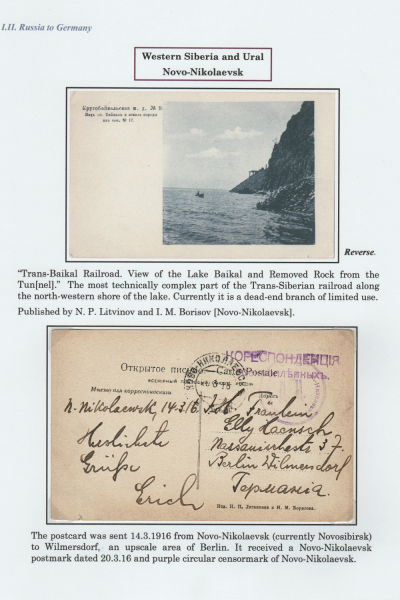 I.II. Russia to Germany
Western Siberia and Ural
Novo-Nikolaevsk
Кругобайкальская ж. д. № 9
Reverse.
“Trans-Baikal Railroad. View of the Lake Baikal and Removed Rock from the
Tun[nel].” The most technically complex part of the Trans-Siberian railroad along
the north-western shore of the lake. Currently it is a dead-end branch of limited use.
Published by N. P. Litvinov and I. M. Borisov [Novo-Nikolaevsk].
КОРЕСПОНДЕНЦІЯ
Открытое Carte Postale
НОВО-НИКОЛАЕВСК
N-Nikolaewsk, 14.3.16.
Fräulein
Elly Haensch
Herzlichste
Grüße
Erich
Berlin Wilmersdorf
Германія.
Изд. Н. П. Литвинова и И. М. Борисова.
The postcard was sent 14.3.1916 from Novo-Nikolaevsk (currently Novosibirsk)
to Wilmersdorf, an upscale area of Berlin. It received a Novo-Nikolaevsk
postmark dated 20.3.16 and purple circular censormark of Novo-Nikolaevsk.